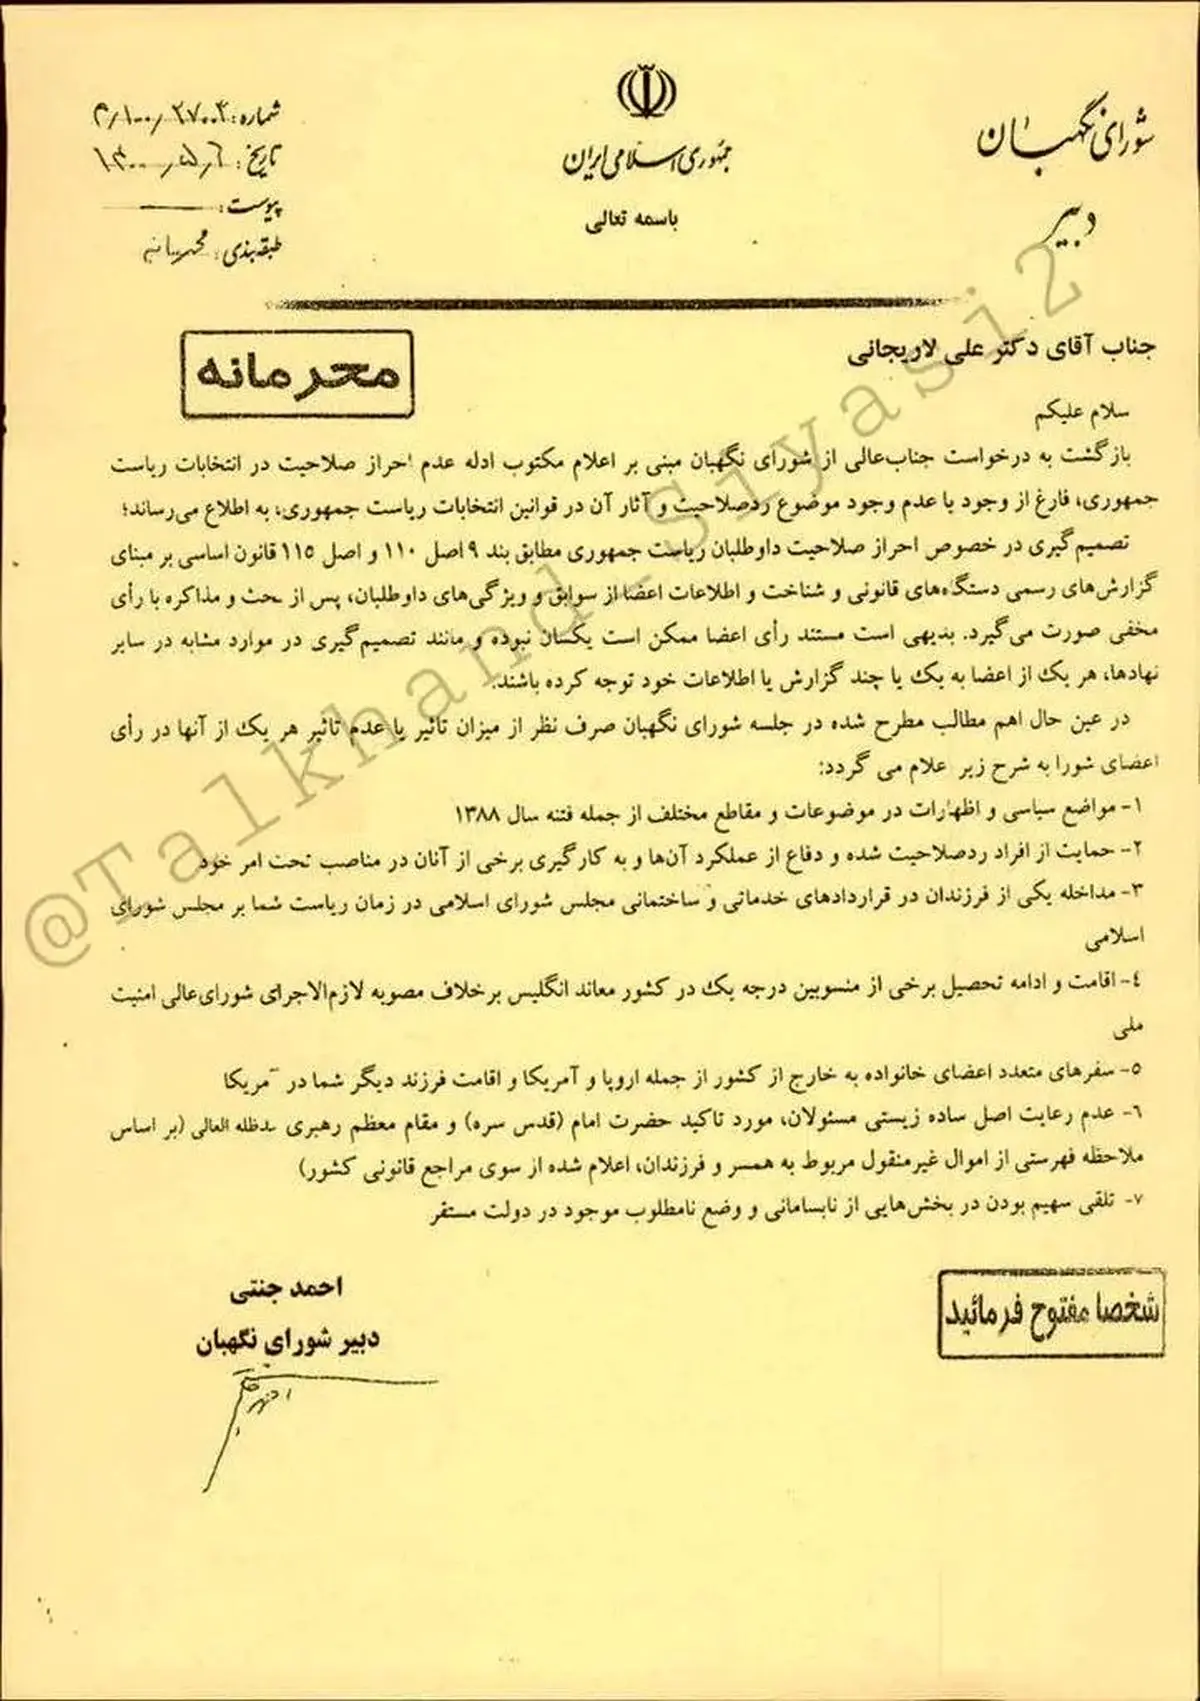 شورای نگهبان
دبیر
جمهوری اسلامی ایران
باسمه تعالی
شماره: ۲۷۰۰۴/۱۰۰/م
تاریخ: ۱۴۰۰/۵/۶
پیوست:
طبقه‌بندی: محرمانه
محرمانه
جناب آقای دکتر علی لاریجانی
سلام علیکم
بازگشت به درخواست جناب‌عالی از شورای نگهبان مبنی بر اعلام مکتوب ادله عدم احراز صلاحیت در انتخابات ریاست
جمهوری، فارغ از وجود یا عدم وجود موضوع ردصلاحیت و آثار آن در قوانین انتخابات ریاست جمهوری، به اطلاع می‌رساند؛
تصمیم‌گیری در خصوص احراز صلاحیت داوطلبان ریاست جمهوری مطابق بند ۹ اصل ۱۱۰ و اصل ۱۱۵ قانون اساسی بر مبنای
گزارش‌های رسمی دستگاه‌های قانونی و شناخت و اطلاعات اعضا از سوابق و ویژگی‌های داوطلبان، پس از بحث و مذاکره با رأی
مخفی صورت می‌گیرد. بدیهی است مستند رأی اعضا ممکن است یکسان نبوده و مانند تصمیم‌گیری در موارد مشابه در سایر
نهادها، هر یک از اعضا به یک یا چند گزارش یا اطلاعات خود توجه کرده باشند.
در عین حال اهم مطالب مطرح شده در جلسه شورای نگهبان صرف نظر از میزان تاثیر یا عدم تاثیر هر یک از آنها در رأی
اعضای شورا به شرح زیر اعلام می گردد:
۱- مواضع سیاسی و اظهارات در موضوعات و مقاطع مختلف از جمله فتنه سال ۱۳۸۸
۲- حمایت از افراد ردصلاحیت شده و دفاع از عملکرد آن‌ها و به کارگیری برخی از آنان در مناصب تحت امر خود
۳- مداخله یکی از فرزندان در قراردادهای خدماتی و ساختمانی مجلس شورای اسلامی در زمان ریاست شما بر مجلس شورای
اسلامی
۴- اقامت و ادامه تحصیل برخی از منسوبین درجه یک در کشور معاند انگلیس برخلاف مصوبه لازم‌الاجرای شورای‌عالی امنیت
ملی
۵- سفرهای متعدد اعضای خانواده به خارج از کشور از جمله اروپا و آمریکا و اقامت فرزند دیگر شما در آمریکا
۶- عدم رعایت اصل ساده زیستی مسئولان، مورد تاکید حضرت امام (قدس سره) و مقام معظم رهبری مدظله العالی (بر اساس
ملاحظه فهرستی از اموال غیرمنقول مربوط به همسر و فرزندان، اعلام شده از سوی مراجع قانونی کشور)
۷- تلقی سهیم بودن در بخش‌هایی از نابسامانی و وضع نامطلوب موجود در دولت مستقر
احمد جنتی
دبیر شورای نگهبان
شخصا مفتوح فرمائید
@Talkhand_Siyasi2